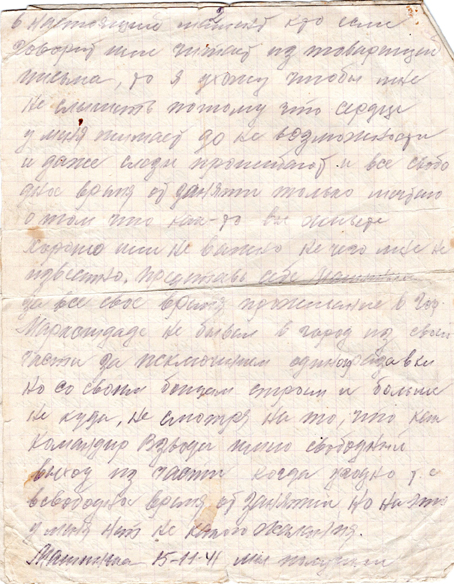 в настоящий момент кто если
говорит или читает из товарищей
письма, то я ухожу чтобы мне
не слышить потому что сердце
у меня до не возможности
и даже слезы и все свобо
дное время от занятий только мечтаю
о том что как-то вы живете
хорошо или не важно не чего мне не
известно. Представь себе
за все свое время проживание в гор
не бывал в город из своей
части за исключением одного
но со своим бойцам строем и больше
не куда, не смотря на то, что как
командир взвода имею свободный
выход из части когда угодно т.е
в свободное время от занятий но на это
у меня нет не какого желания.
15-11-41 мы получили